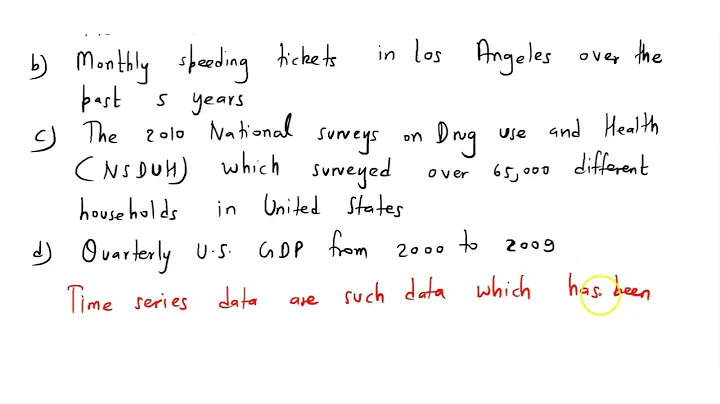 b) Monthly speeding tickets in Los Angeles over the
past 5 years
c) The 2010 National surveys on Drug use and Health
(NSDUH) which surveyed over 65,000 different
households in United States
d) Quarterly U.S. GDP from 2000 to 2009
Time series data are such data which has been